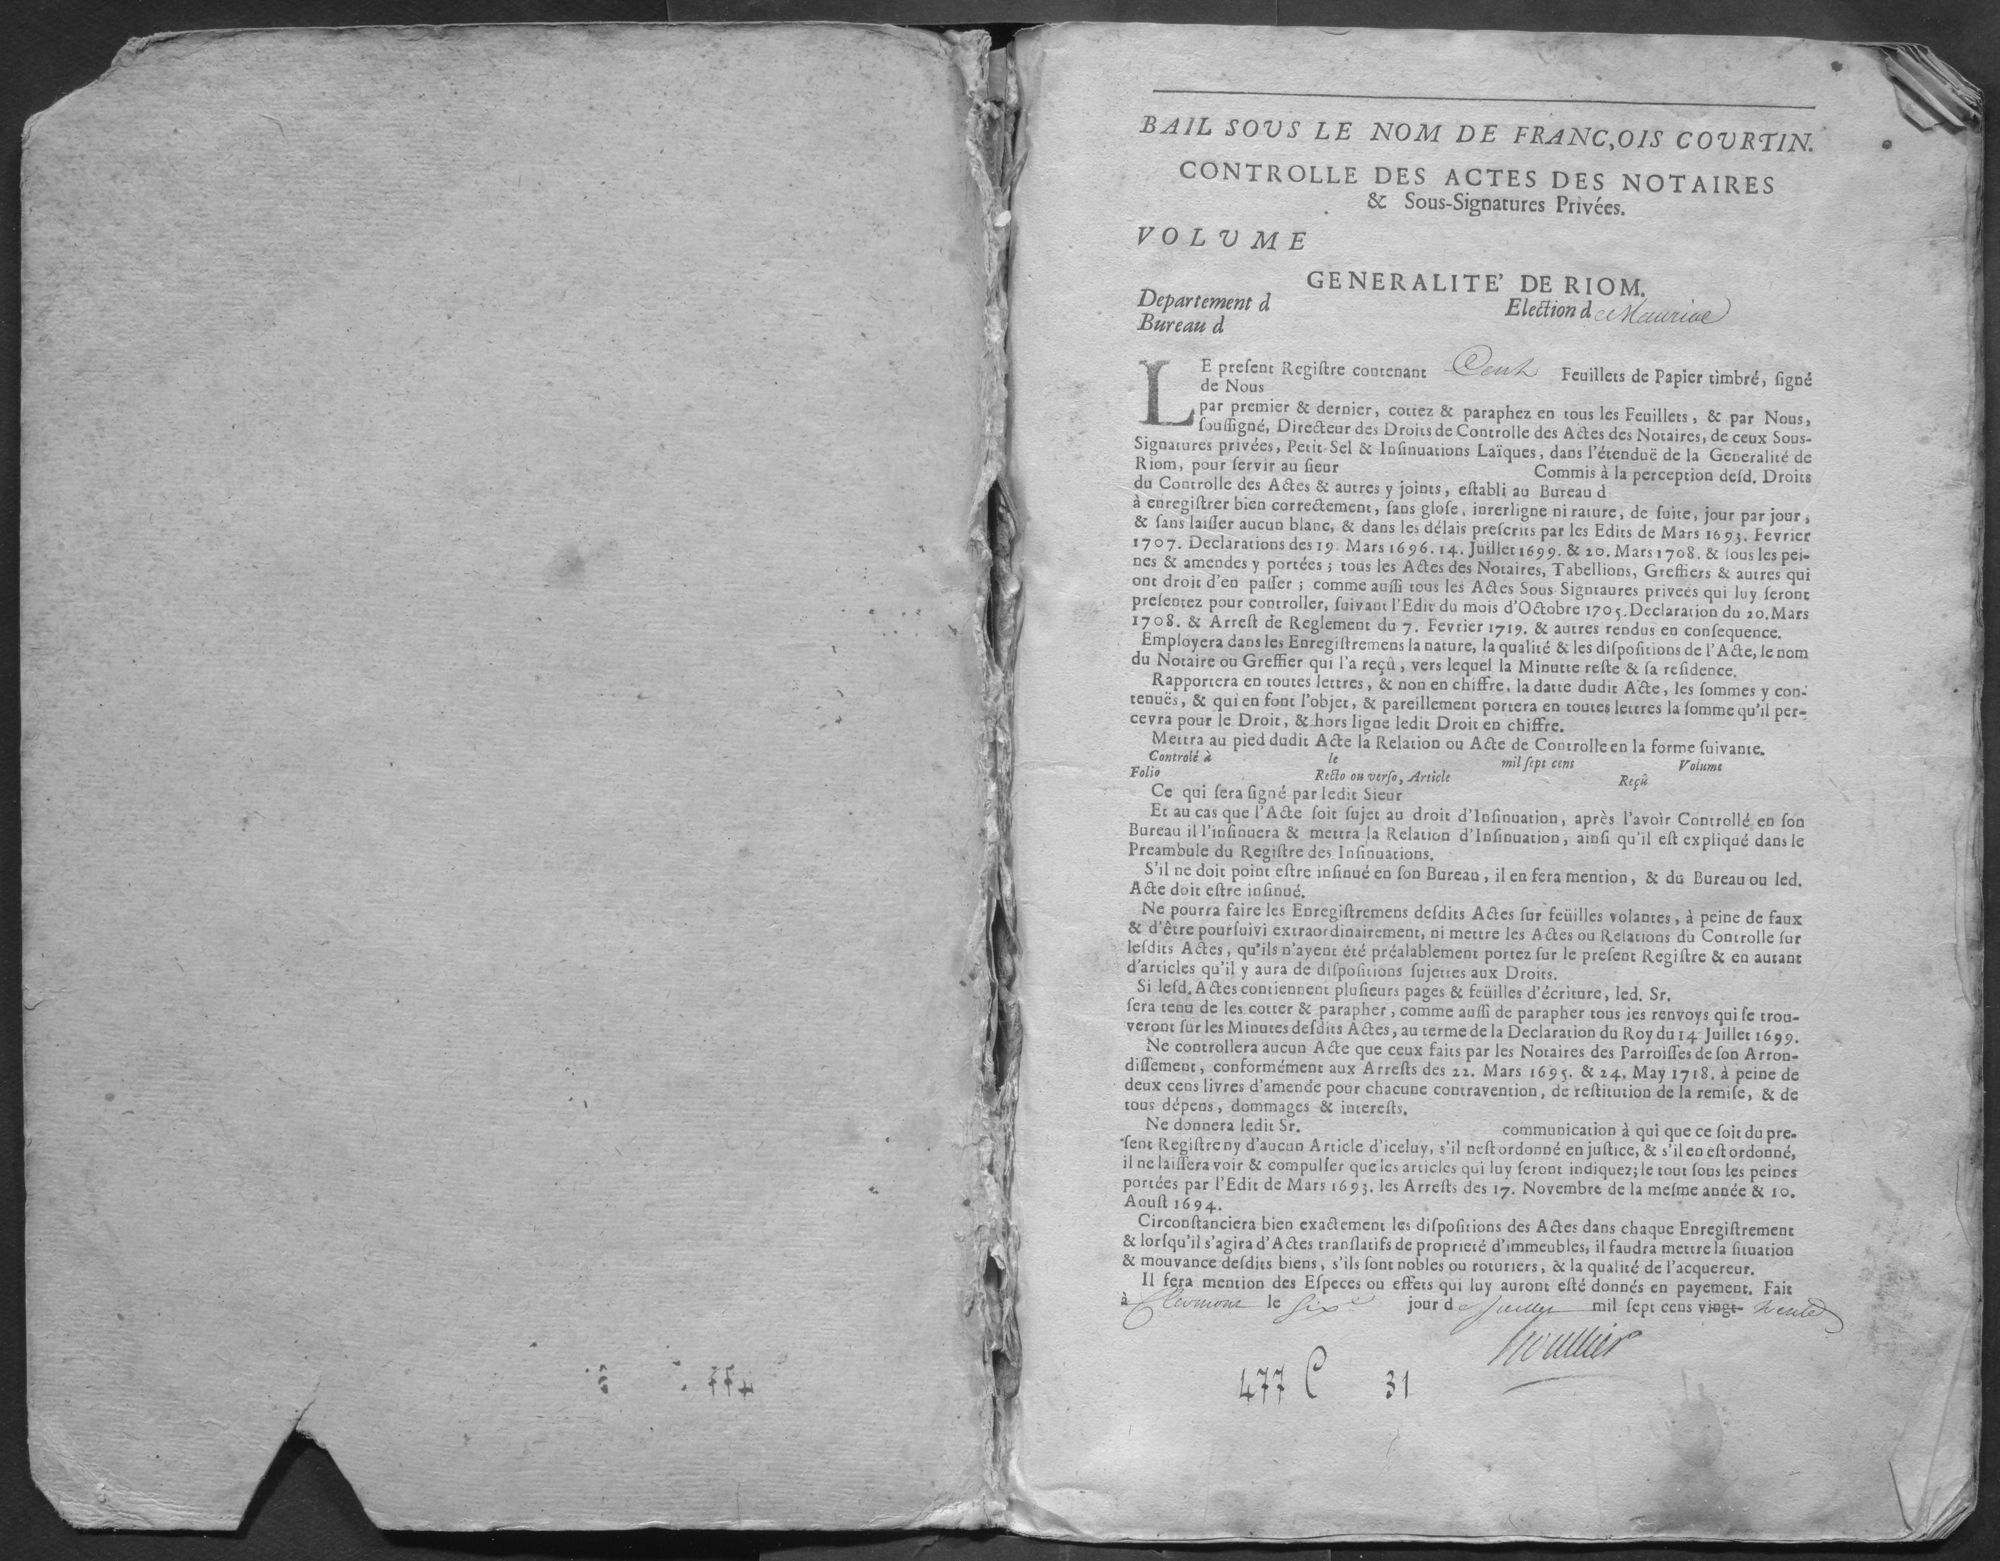 BAIL SOVS LE NOM DE FRANC,OIS COVRTIN.
CONTROLLE DES ACTES DES NOTAIRES
& Sous-Signatures Privées.
VOLVME
GENERALITE' DE RIOM.
Departement d
Election de Mauriac
Bureau d
LE preſent Regiſtre contenant Cent Feuillets de Papier timbré, ſigné
de Nous
par premier & dernier, cottez & paraphez en tous les Feuillets, & par Nous,
ſouſſigné, Directeur des Droits de Controlle des Actes des Notaires, de ceux Sous-
Signatures privées, Petit-Sel & Inſinuations Laïques, dans l'étenduë de la Generalité de
Riom, pour ſervir au ſieur Commis à la perception deſd. Droits
du Controlle des Actes & autres y joints, eſtabli au Bureau d
à enregiſtrer bien correctement, ſans gloſe, inrerligne ni rature, de ſuite, jour par jour,
& ſans laiſſer aucun blanc, & dans les délais preſcrits par les Edits de Mars 1693. Fevrier
1707. Declarations des 19. Mars 1696. 14. Juillet 1699. & 20. Mars 1708. & ſous les pei-
nes & amendes y portées ; tous les Actes des Notaires, Tabellions, Greffiers & autres qui
ont droit d'en paſſer ; comme auſſi tous les Actes Sous Signtaures priveés qui luy ſeront
preſentez pour controller, ſuivant l'Edit du mois d'Octobre 1705. Declaration du 20. Mars
1708. & Arreſt de Reglement du 7. Fevrier 1719. & autres rendus en conſequence.
Employera dans les Enregiſtremens la nature, la qualité & les diſpoſitions de l'Acte, le nom
du Notaire ou Greffier qui l'a reçû, vers lequel la Minutte reſte & ſa reſidence.
Rapportera en toutes lettres, & non en chiffre, la datte dudit Acte, les ſommes y con-
tenuës, & qui en font l'objet, & pareillement portera en toutes lettres la ſomme qu'il per-
cevra pour le Droit, & hors ligne ledit Droit en chiffre.
Mettra au pied dudit Acte la Relation ou Acte de Controlle en la forme ſuivante.
Controlé à le mil ſept cens Volume
Folio Recto ou verſo, Article Reçû
Ce qui ſera ſigné par ledit Sieur
Et au cas que l'Acte ſoit ſujet au droit d'Inſinuation, après l'avoir Controllé en ſon
Bureau il l'inſinuera & mettra la Relation d'Inſinuation, ainſi qu'il eſt expliqué dans le
Preambule du Regiſtre des Inſinuations.
S'il ne doit point eſtre inſinué en ſon Bureau, il en fera mention, & du Bureau ou led.
Acte doit eſtre inſinué.
Ne pourra faire les Enregiſtremens deſdits Actes ſur feüilles volantes, à peine de faux
& d'être pourſuivi extraordinairement, ni mettre les Actes ou Relations du Controlle ſur
leſdits Actes, qu'ils n'ayent été préalablement portez ſur le preſent Regiſtre & en autant
d'articles qu'il y aura de diſpoſitions ſujettes aux Droits.
Si leſd. Actes contiennent pluſieurs pages & feüilles d'écriture, led. Sr.
ſera tenu de les cotter & parapher, comme auſſi de parapher tous les renvoys qui ſe trou-
veront ſur les Minutes deſdits Actes, au terme de la Declaration du Roy du 14 Juillet 1699.
Ne controllera aucun Acte que ceux faits par les Notaires des Parroiſſes de ſon Arron-
diſſement, conformément aux Arreſts des 22. Mars 1695. & 24. May 1718. à peine de
deux cens livres d'amende pour chacune contravention, de reſtitution de la remiſe, & de
tous dépens, dommages & intereſts.
Ne donnera ledit Sr. communication à qui que ce ſoit du pre-
ſent Regiſtre ny d'aucun Article d'iceluy, s'il neſt ordonné en juſtice, & s'il en eſt ordonné,
il ne laiſſera voir & compulſer que les articles qui luy ſeront indiquez; le tout ſous les peines
portées par l'Edit de Mars 1693. les Arreſts des 17. Novembre de la meſme année & 10.
Aouſt 1694.
Circonſtanciera bien exactement les diſpoſitions des Actes dans chaque Enregiſtrement
& lorſqu'il s'agira d'Actes tranſlatifs de proprieté d'immeubles, il faudra mettre la ſituation
& mouvance deſdits biens, s'ils ſont nobles ou roturiers, & la qualité de l'acquereur.
Il fera mention des Eſpeces ou effets qui luy auront eſté donnés en payement. Fait
à Clermont le Six jour de Juillet mil ſept cens vingt trente
477 C 31